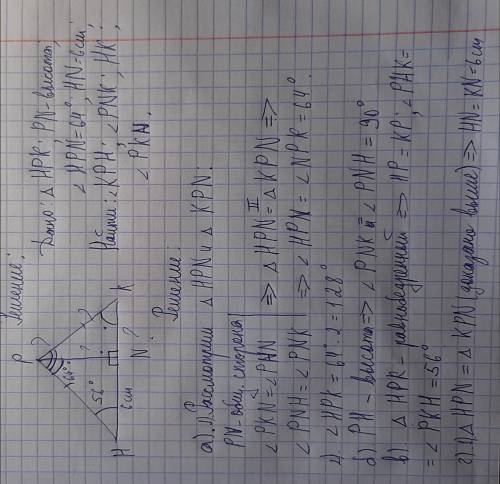 Решение:
P
64°
56°
?
H
6 cm
N
?
K
Дано: △ HPK; PN-высота;
∠ HPN=64°; HN=6 cm
Найти: ∠KPH; ∠ PNK; HK;
∠ PKN.
Решение:
а) 1) Рассмотрим △ HPN и △ KPN:
PN-общ. сторона
∠PKN=∠PHN
∠ PNH=∠PNK
=> △ HPN = △ KPN =>
II
=> ∠ HPN = ∠ NPK = 64°.
2) ∠HPK = 64°·2 = 128°
б) PH - высота => ∠ PNK и ∠ PNH = 90°
в) △ HPK - равнобедренный => HP = KP; ∠ PHK =
= ∠ PKH = 56°
г) 1) △ HPN = △ KPN (доказано выше) => HN = KN = 6 cm